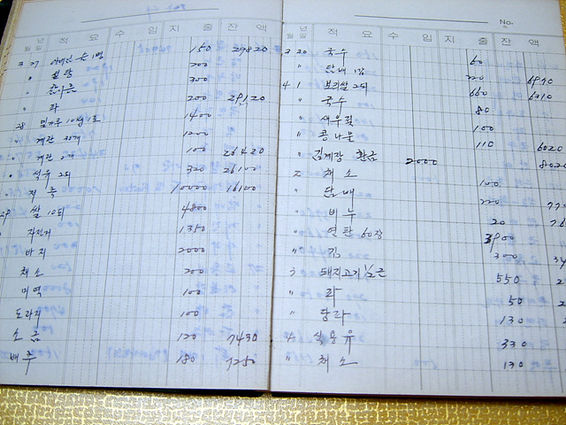 년 월 일 적 요 수 입 지 출 잔 액
3 27 아버님 1병 150 29820
〃 설탕 200
〃 콩나물 300
〃 파 200 29120
28 밀가루 10kg 1포 1400
〃 계란 30개 1200
〃 계란 2개 100 26420
〃 석유 2되 320 26100
〃 저축 10000 16100
29 쌀 10되 4800
자전거 1350
바지 2000
채소 200
미역 100
도라지 100
소금 120 7430
배추 180 7250
No.
년 월 일 적 요 수 입 지 출 잔 액
3 30 국수 60
〃 담배 1갑 220 6970
4 1 보리쌀 2되 660 6310
〃 국수 80
〃 새우젓 100
〃 콩나물 110 6020
〃 김계장 환금 2000 8020
2 채소 100
〃 담배 220
〃 비누 20
〃 연탄 60장 3900
〃 김 300
3 돼지고기 1/2근 550
〃 파 50
〃 130
4 석유 330
〃 채소 130